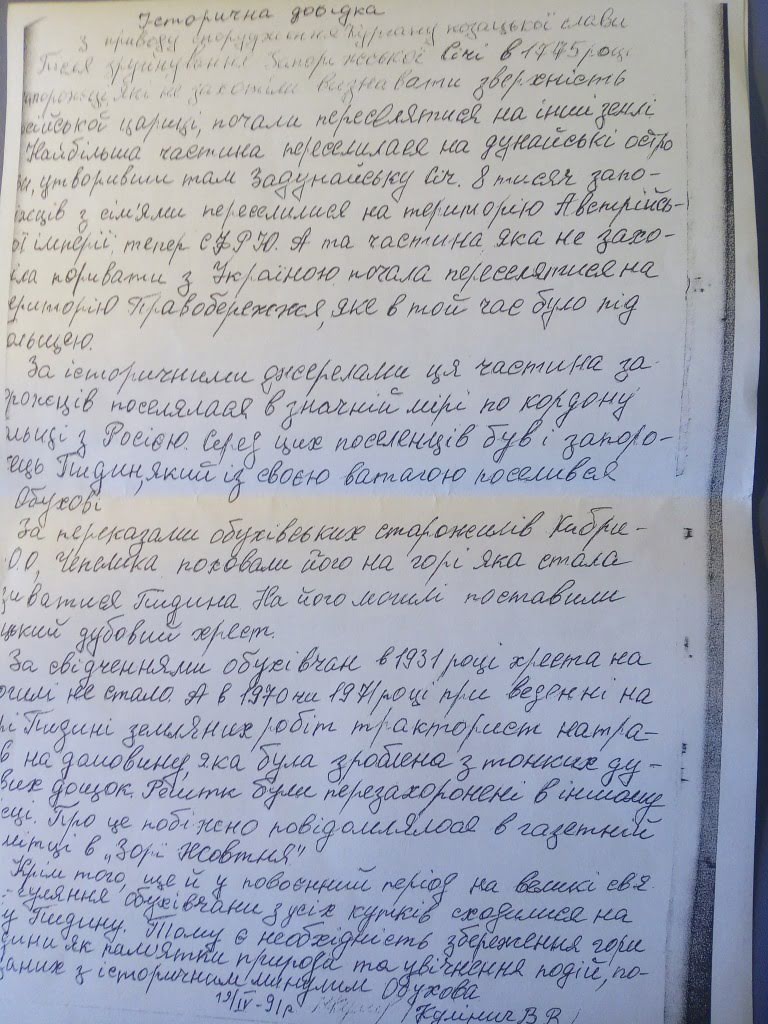 Історична довідка
З приводу спорудження Кургану козацької слави
Після зруйнування Запорізської Січі в 1775 році
апорожці, які не захотіли визнавати зверхність
сійської цариці, почали переселятися на інші землі
Найбільша частина переселилася на дунайські остро
ви, утворивши там Задунайську Січ. 8 тисяч запо-
жців з сім'ями переселилися на територію Австрійсь-
ої імперії, тепер СФРЮ. А та частина, яка не захо-
іла поривати з Україною почала переселятися на
ериторію Правобережжя, яке в той час було під
ольщею.
За історичними джерелами ця частина за-
орожців поселялася в значній мірі по кордону
ольщі з Росією. Серед цих поселенців був і запоро-
ець Пидин, який із своєю ватагою поселився
Обухові
За переказами обухівських старожилів Кибри-
О.О, Чепелика поховали його на горі яка стала
зиватися Пидина. На його могилі поставили
цький дубовий хрест.
За свідченнями обухівчан в 1931 році хреста на
огилі не стало. А в 1970 чи 1971 році при веденні на
рі Пидині земляних робіт тракторист натра-
в на домовину, яка була зроблена з тонких ду-
вих дощок. Рештк були перезахоронені в іншому
сці. Про це побіжно повідомлялося в газетній
мітці в „Зорі Жовтня"
Крім того, ще й у повоєнний період на великі свя
-гуляння обухівчани з усіх кутків сходилися на
у Пидину. Тому є необхідність збереження гори
дини як пам'ятки природи та увічнення подій, по-
заних з історичним минулим Обухова
19/IV-91р Кулінич В В/